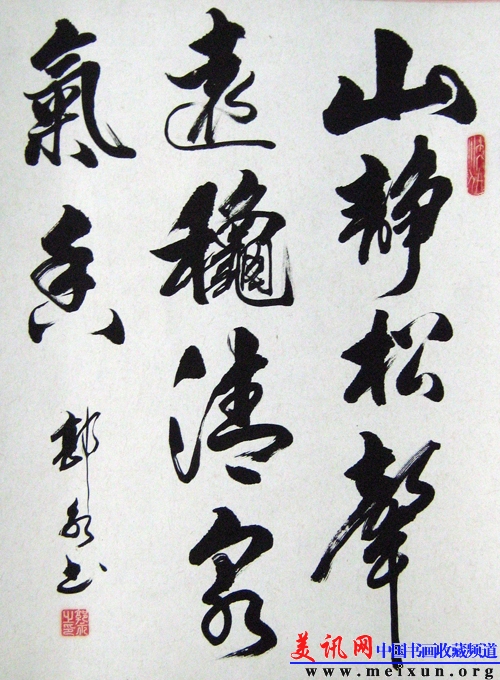 山静松聲
遠龝清泉
氣香
书
美讯网 中国书画收藏频道
www.meixun.org